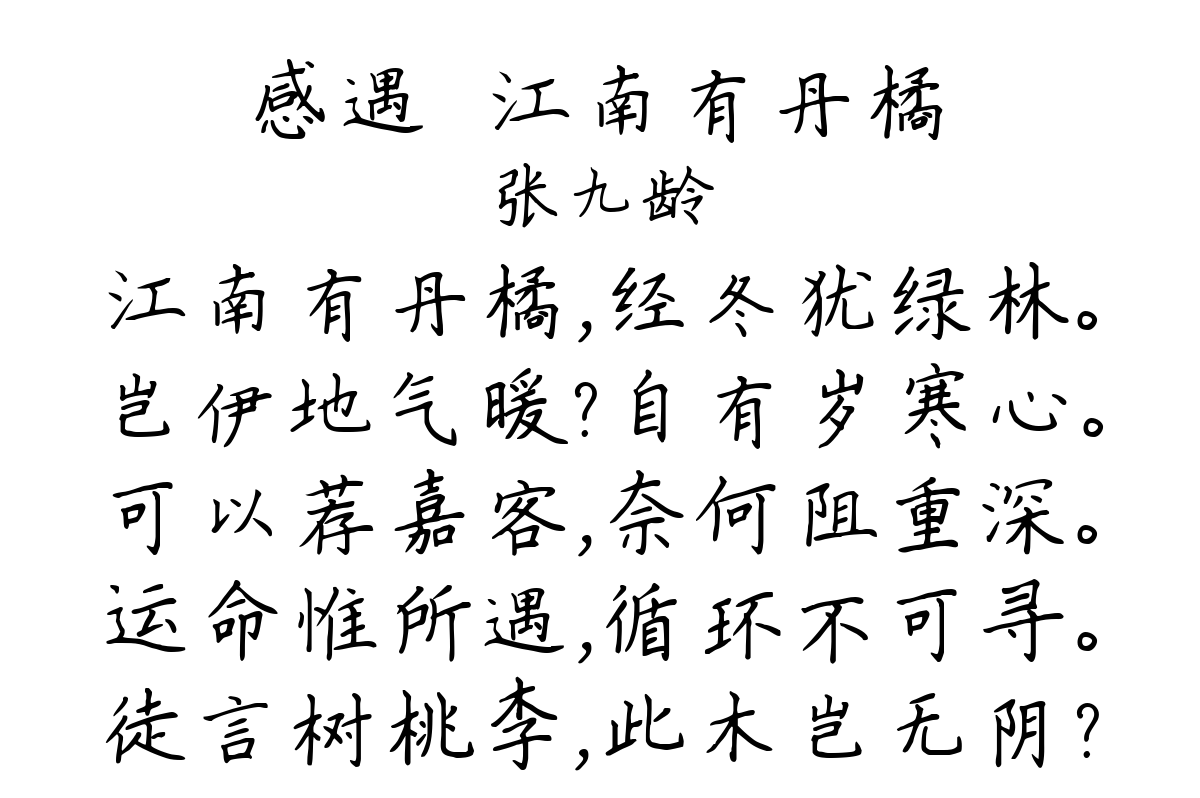 感遇 江南有丹橘
张九龄
江南有丹橘,经冬犹绿林。
岂伊地气暖?自有岁寒心。
可以荐嘉客,奈何阻重深。
运命惟所遇,循环不可寻。
徒言树桃李,此木岂无阴?